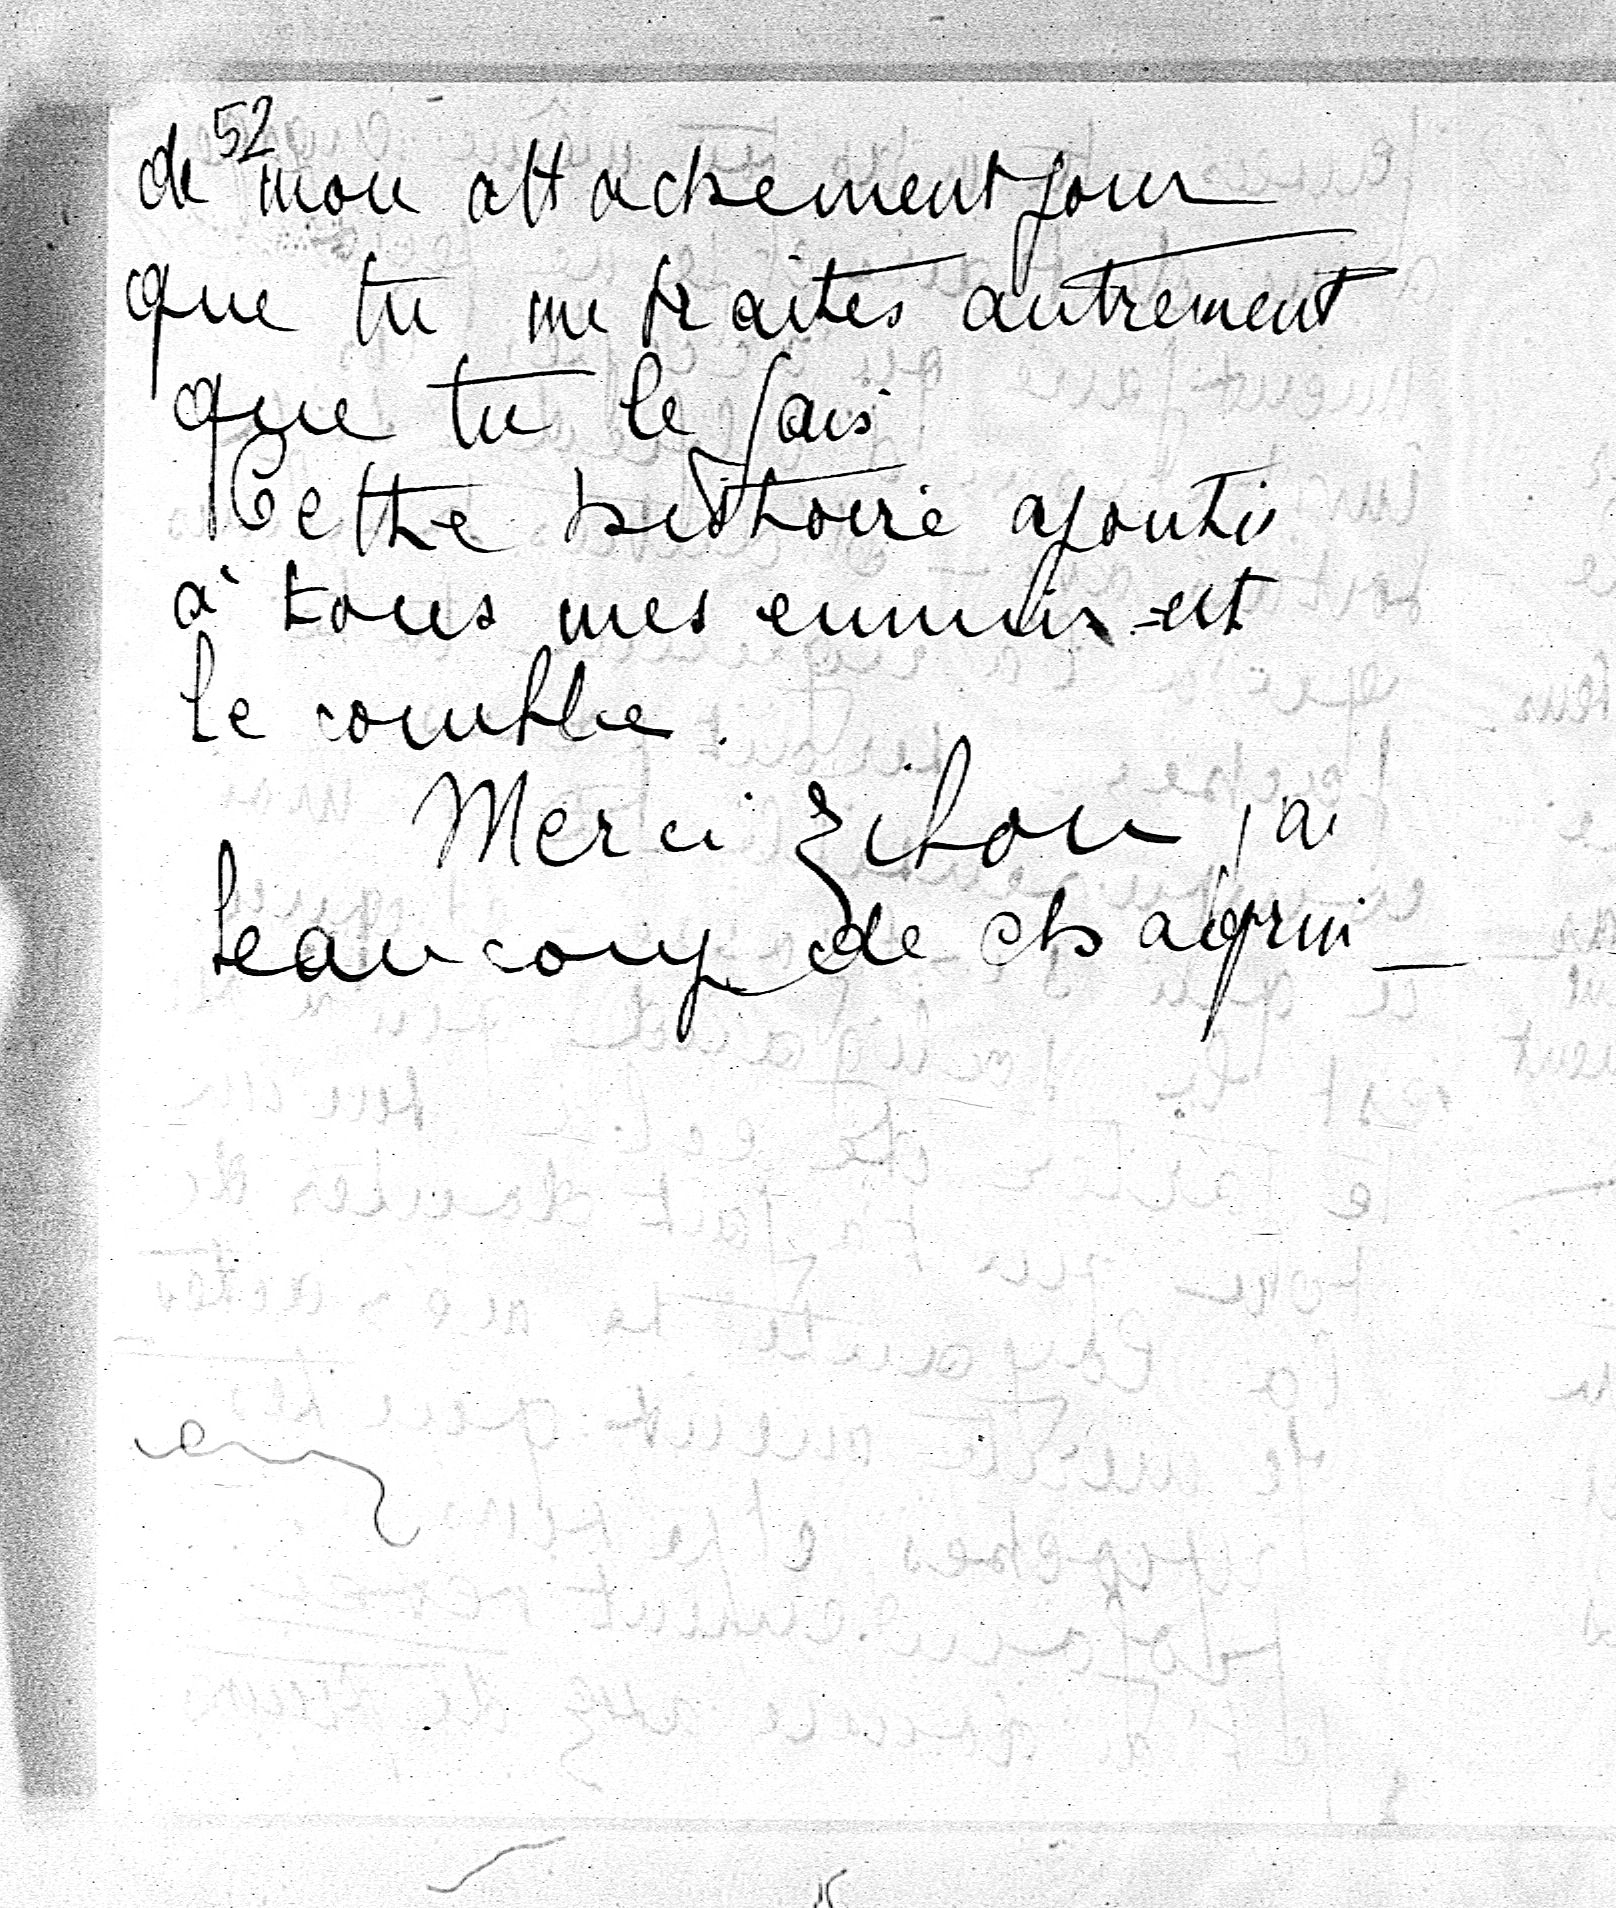 52
de mon attachement pour
que tu me traites autrement
que tu le fais
Cette histoire ajoutée
à tous mes ennuis est
le comble.
Merci Zibou j'ai
beaucoup de chagrin _